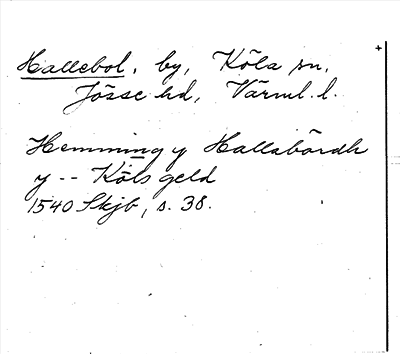 Hallebol, by, Köla sn,
Jösse hd, Värml. l.
Hemming y Hallabördh
y -- Köls geld
1540 Skjb, s. 38.